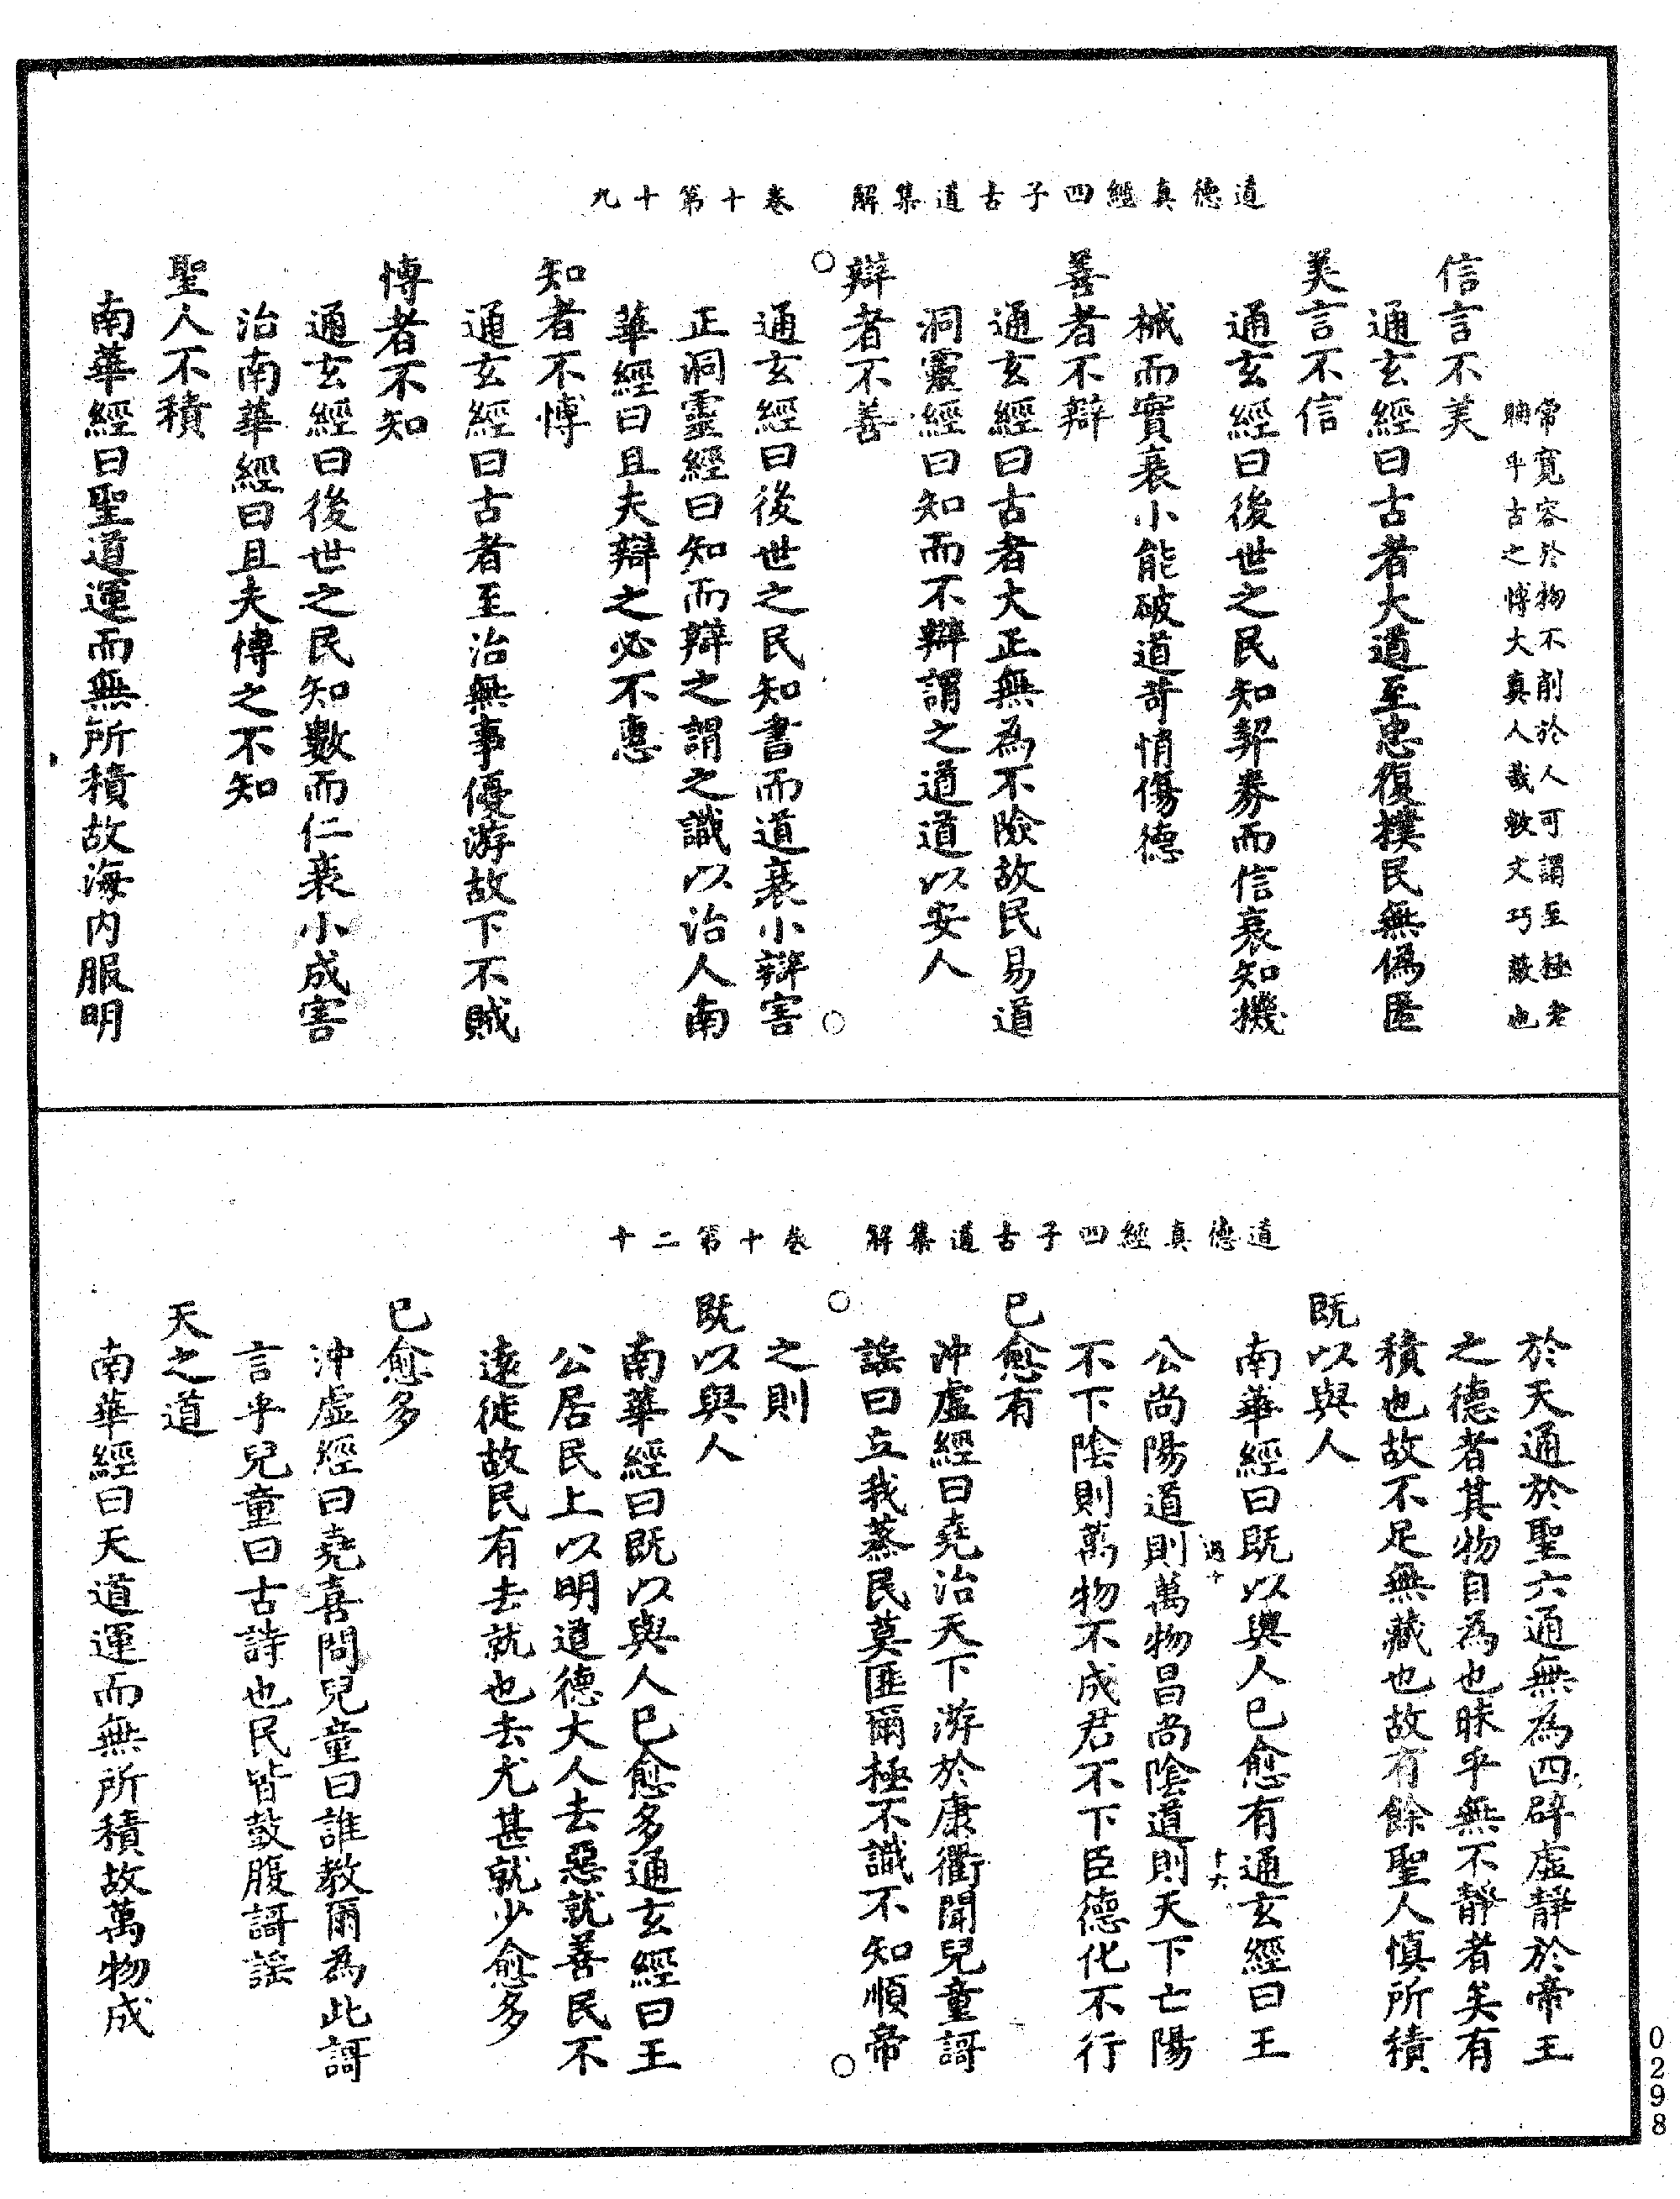 道德真經四子古道集解　卷十第十九
常寬容於物不削於人可謂至極老
聃乎古之愽大真人哉敇文巧蔽也
信言不美
通玄經曰古者大道至忠復樸民無僞匿
美言不信
通玄經曰後世之民知契券而信衰知機
械而實衰小能破道苛悄傷德
善者不辯
通玄經曰古者大正無為不險故民易道
洞靈經曰知而不辯謂之道道以安人
辯者不善
通玄經曰後世之民知書而道衰小辯害
正洞靈經曰知而辯之謂之識以治人南
華經曰且夫辯之必不惠
知者不愽
通玄經曰古者至治無事優游故下不賊
愽者不知
通玄經曰後世之民知數而仁衰小成害
治南華經曰且夫愽之不知
聖人不積
南華經曰聖道運而無所積故海内服明
道德真經四子古道集解　卷十第二十
於天通於聖六通無為四辟虛靜於帝王
之德者其物自為也昧乎無不靜者矣有
積也故不足無藏也故有餘聖人慎所積
既以與人
南華經曰既以與人已愈有通玄經曰王
過十
十六
公尚陽道則萬物昌尚陰道則天下亡陽
不下陰則萬物不成君不下臣德化不行
已愈有
沖虛經曰堯治天下游於康衢聞兒童謌
謠曰立我蒸民莫匪爾極不識不知順帝
之則
既以與人
南華經曰既以與人已愈多通玄經曰王
公居民上以明道德大人去惡就善民不
遠徙故民有去就也去尤甚就少愈多
已愈多
沖虛經曰堯喜問兒童曰誰教爾為此謌
言乎兒童曰古詩也民皆鼓腹謌謠
天之道
南華經曰天道運而無所積故萬物成
0298